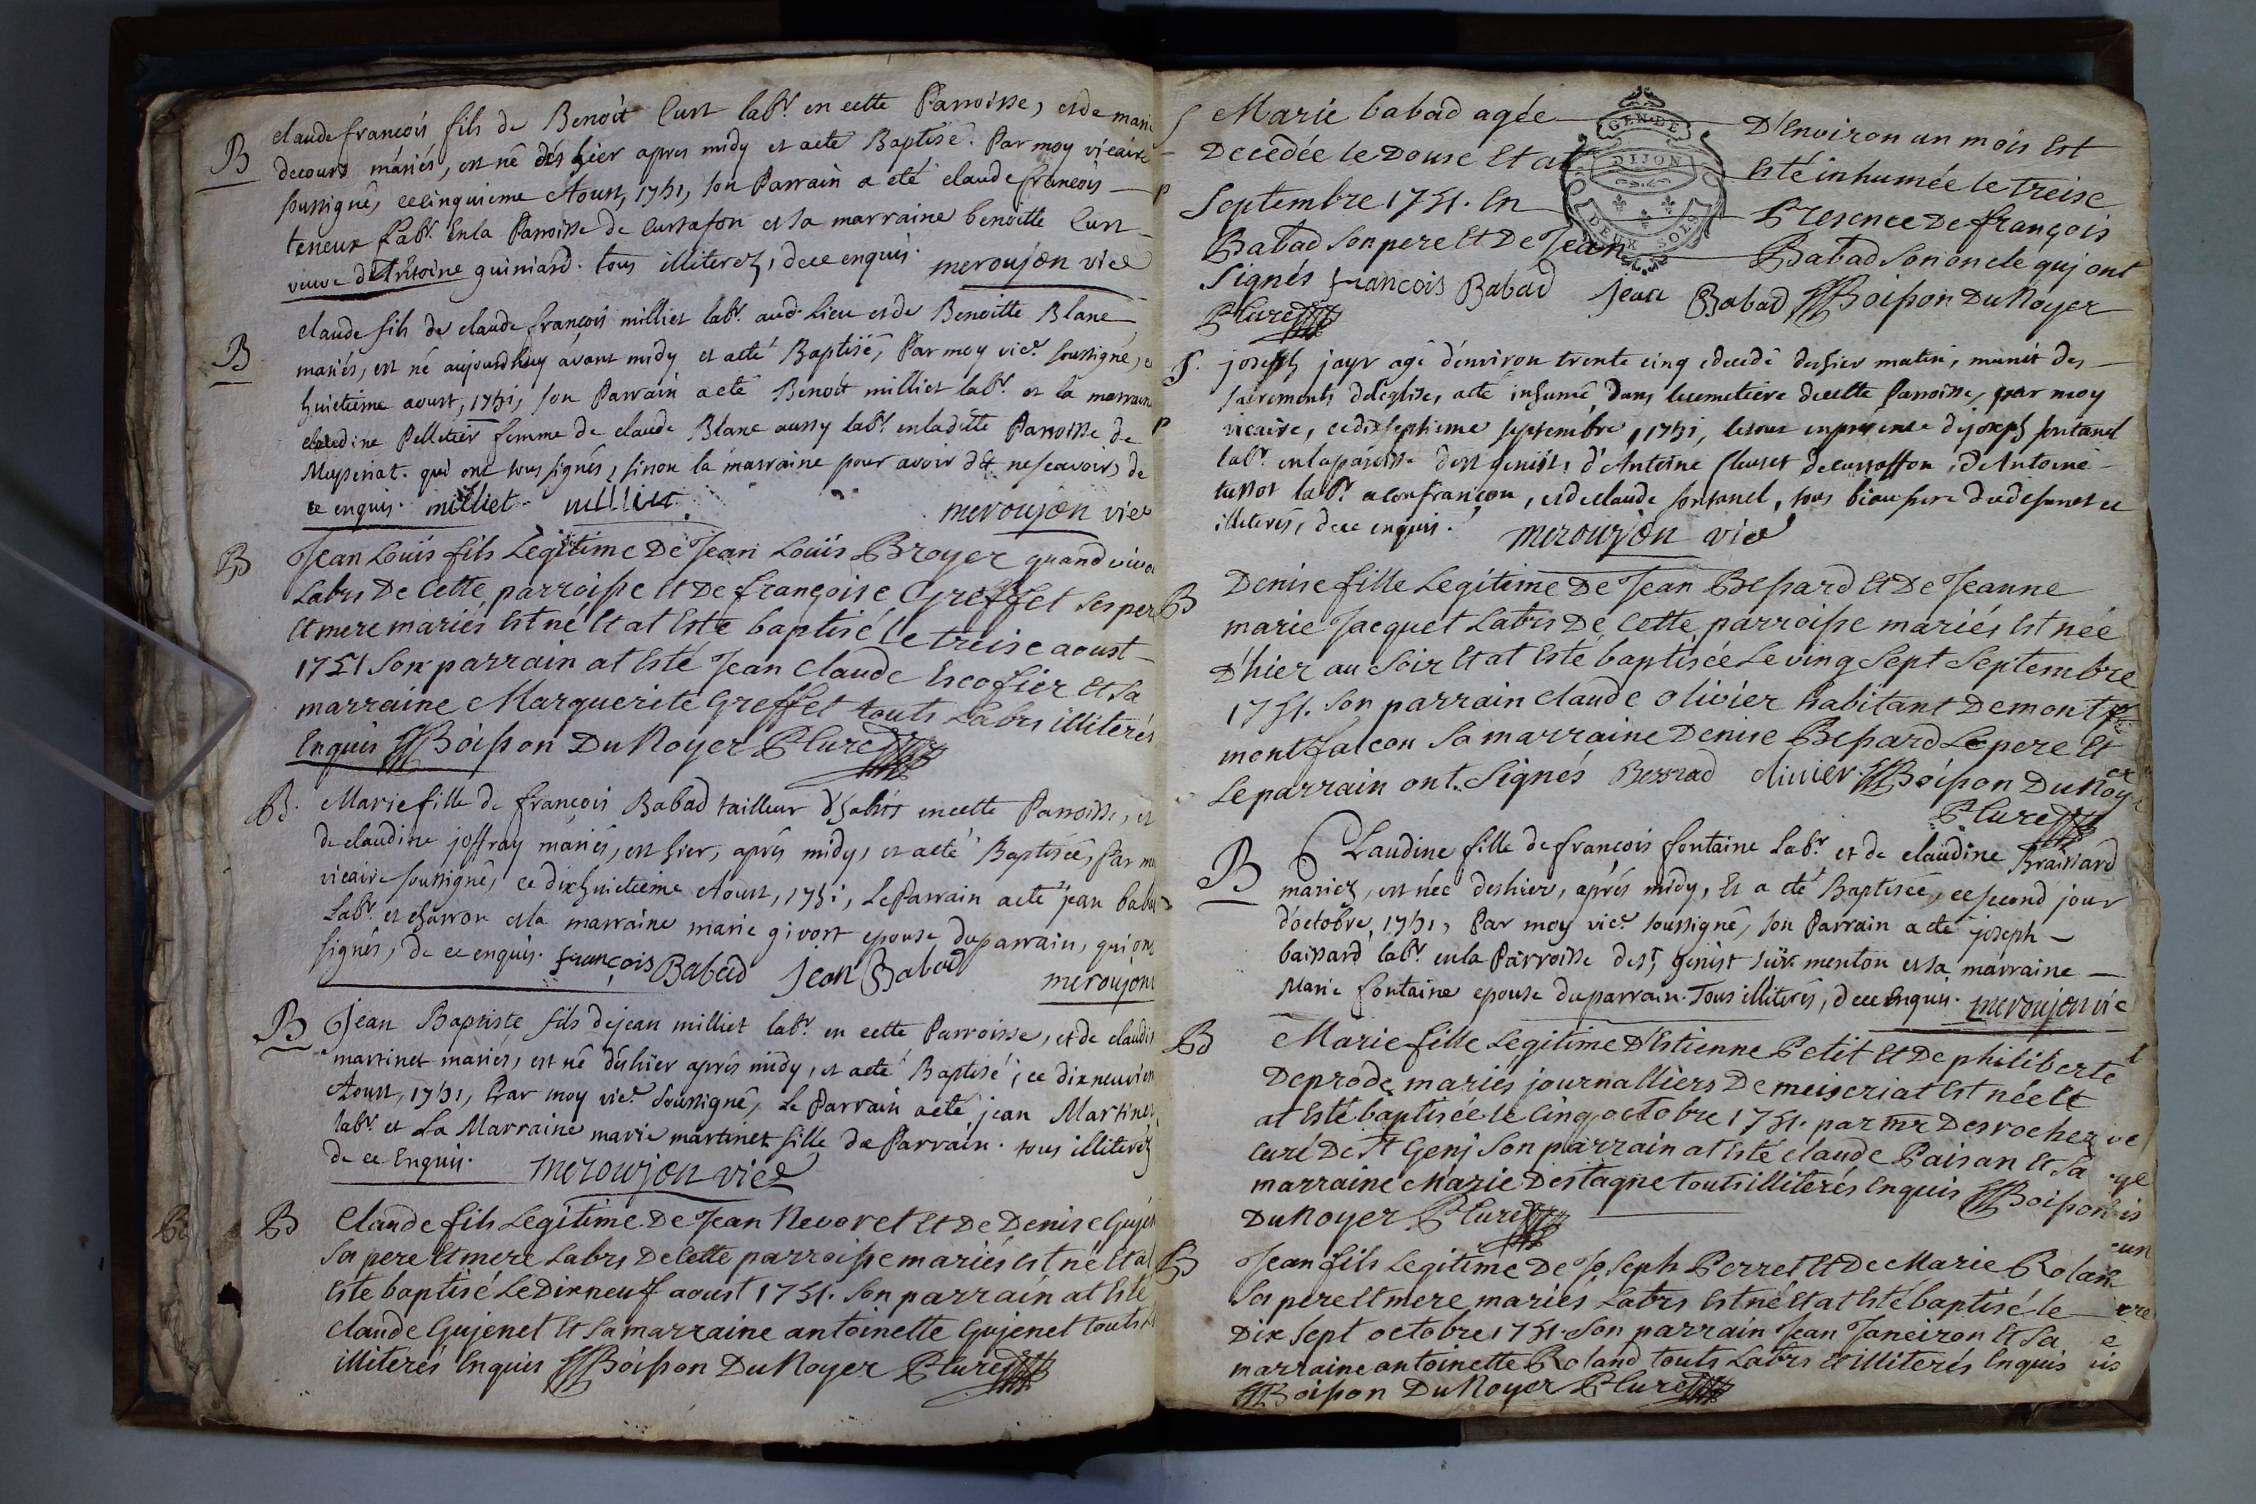 B claude françois fils de Benoit Curt labr. en cette Parroisse, et de marie
decourt mariés, est né dés hier apres midy et a eté Baptisé. Par moy vicaire
soussigné, ce cinquieme Aoust, 1751, son Parrain a eté claude françois
teneur Labr. En la Parroisse de Curtafon et sa marraine benoitte Curt
veuve d'Antoine guiniard. tous illiterez, de ce enquis. meroujon vice
B claude fils de claude françois milliet labr. aud. Lieu et de Benoitte Blanc
mariés, est né aujourdhuy avant midy et a eté Baptisé, Par moy vice. soussigné, ce
huictieme aoust, 1751, son Parrain a eté Benoit milliet labr. et la marraine
claudine Pelletier femme de claude Blanc aussy labr. en la ditte Parroisse de
Mayseriat. qui ont sous signés, sinon la marraine pour avoir dit ne scavoir, de
ce enquis. milliet milliet. meroujon vice
B Jean Louïs fils Légitime De Jean Louïs Broyer quand vivoit
Labrs De Cette parroisse Et De françoise Greffet ses pere
Et mere mariés Est né Et at Esté baptisé le treise aoust
1751 son parrain at Esté Jean Claude Escofier Et Sa
marraine Marguerite Greffet touts Labrs illiterés
Enquis Boisson Du Noyer Curé
B. Marie fille de françois Babad tailleur d'habits en cette Parroisse, et
de claudine joffray mariés, est hier, après midy, et a eté Baptisée, Par moy
vicaire soussigné, ce dix huictieme Aoust, 1751, Le Parrain a eté jean babad
Labr. et charron et la marraine marie givort epouse du parrain, qui ont
signés, de ce enquis. françois Babad Jean Babad meroujon
B Jean Baptiste fils de jean milliet labr. en cette Parroisse, et de claudine
martinet mariés, est né dés hier après midy, et a eté Baptisé, ce dixneuvieme
Aoust, 1751, Par moy vice. Soussigné, Le Parrain a eté jean Martinet
labr. et La Marraine marie martinet fille du Parrain. tous illiterez
de ce Enquis. meroujon vice
B Claude fils Legitime De Jean Nevoret Et De Denise Gujenet
Ses pere Et mere Labrs De Cette parroisse mariés Est né Et at
Esté baptisé Le Dixneuf aoust 1751. Son parrain at Esté
claude Gujenet Et Sa marraine antoinette Gujenet touts
illiterés Enquis Boisson Du Noyer Curé
S Marie babad agée D'Environ un mois Est
Decedée le Douse Et at Esté inhumée le treise
Septembre 1751. En Presence De françois
Babad Son pere Et De Jean Babad Son oncle qui ont
Signés françois Babad Jean Babad Boisson Du Noyer
Curé
GEN. DE
DIJON
DEUX SOLS
S. joseph jayr agé d'environ trente cinq decedé des hier matin, munit des
sacrements de l'eglise, a eté inhumé dans le cemetiere de cette Parroisse, par moy
vicaire, ce dixseptieme septembre, 1751, le tout en presence de joseph fontanel
labr. en la paroisse de st genist, d'Antoine Cleuset de curtaffon, d'Antoine
tussot labr. a confrançon, et de claude fontanel, tous beau frere du defunct et
illiterés, de ce enquis. meroujon vice
B Denise fille Legitime De Jean Bessard Et De Jeanne
marie Jacquet Labrs De Cette parroisse mariés Est née
D'hier au Soir Et at Esté baptisée Le ving Sept Septembre
1751. Son parrain Claude Olivier habitant De mont
montfalcon Sa marraine Denise Bessard Le pere Et
Le parrain ont Signés Bessrad olivier. Boisson Du Noyer
Curé
B Claudine fille de francois fontaine Labr. et de claudine Braissard
mariez, est née des hier, après midy, Et a eté Baptisée, ce second jour
d'octobre, 1751, Par moy vice. soussigné, son Parrain a eté joseph
baissard labr. en la Parroisse de st, genist sur menton et sa marraine
Marie fontaine epouse du parrain. Tous illiterés, de ce Enquis. meroujon vic
B Marie fille Legitime D'Estienne Petit Et De philiberte
Deprode mariés journalliers De meiseriat Est née Et
at Esté baptisée le Cinq octobre 1751. par mr Desrocher
Curé De St Genj Son parrain at Esté claude Paisan Et Sa
marraine Marie Destagne touts illiterés Enquis Boisson
Du Noyer Curé
B Jean fils Legitime De Joseph Perret Et De Marie Roland
Ses pere Et mere mariés Labrs Est né Et at Esté baptisé le
Dix Sept octobre 1751. Son parrain Jean Janeiron Et Sa
marraine antoinette Roland touts Labrs Et illiterés Enquis
Boisson Du Noyer Curé